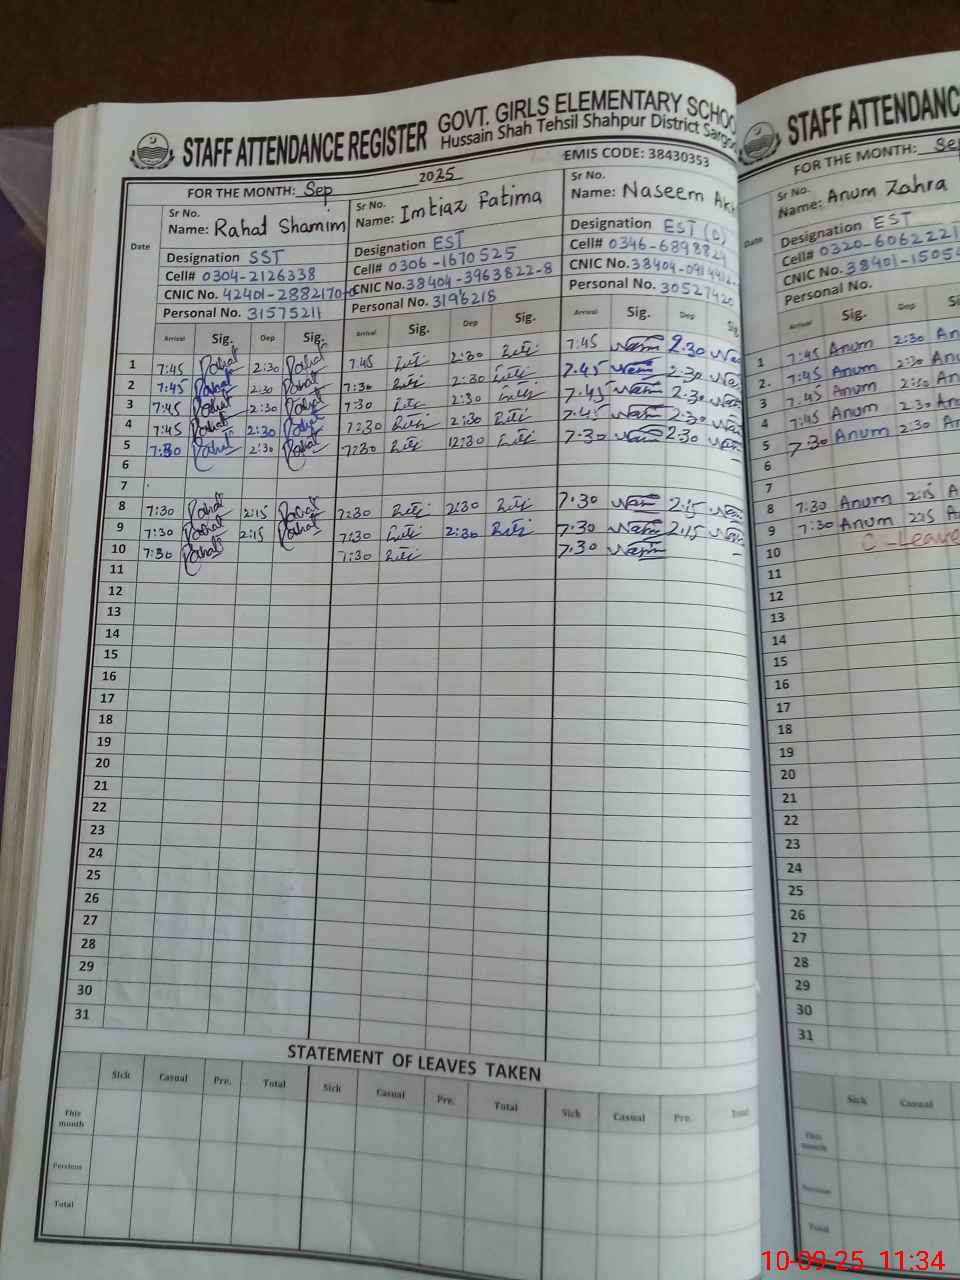 STAFF ATTENDANCE REGISTER GOVT. GIRLS ELEMENTARY SCHOO
Hussain Shah Tehsil Shahpur District Sargo
EMIS CODE: 38430353
FOR THE MONTH: Sep 2025
Date
Sr No.
Name: Rahat Shamim
Designation SST
Cell# 0304-2126338
CNIC No. 42401-2882170-
Personal No. 31575211
Sr No.
Name: Imtiaz Fatima
Designation EST
Cell# 0306-1670525
CNIC No. 38404-3963822-8
Personal No. 3196218
Sr No.
Name: Naseem
Designation EST (C)
Cell# 0346-689882
CNIC No. 38404-
Personal No. 30527420
Arrival Sig. Dep Sig. Arrival Sig. Dep Sig. Arrival Sig. Dep
1 7:45 Rahat 2:30 Rahat 7:45 2:30 7:45 2.30
2 7:45 Rahat 2:30 Rahat 7:30 2:30 7.45 2.30
3 7:45 Rahat 2:30 Rahat 7:30 2:30 7.45 2.30
4 7:45 Rahat 2:30 Rahat 7:30 2:30 7.45 2.30
5 7:30 Rahat 2:30 Rahat 7:30 12:30 7.30 2.30
6
7
8 7:30 Rahat 2:15 Rahat 7:30 2:30 7.30 2.15
9 7:30 Rahat 2:15 Rahat 7:30 2:30 7.30 2.15
10 7:30 Rahat 7:30 7.30
11
12
13
14
15
16
17
18
19
20
21
22
23
24
25
26
27
28
29
30
31
STATEMENT OF LEAVES TAKEN
Sick Casual Pre. Total Sick Casual Pre. Total Sick Casual Pre. Total
This month
Previous
Total
STAFF ATTENDANC
FOR THE MONTH: Sep
Date
Sr No.
Name: Anum Zahra
Designation EST
Cell# 0320-6062221
CNIC No. 38401-1505
Personal No.
Arrival Sig. Dep
1 7:45 Anum 2:30 An
2. 7:45 Anum 2:30 Anu
3 7:45 Anum 2:30 An
4 7:45 Anum 2:30 An
5 7:30 Anum 2:30 An
6
7
8 7:30 Anum 2:15 A
9 7:30 Anum 2:15 A
10 C-Leave
11
12
13
14
15
16
17
18
19
20
21
22
23
24
25
26
27
28
29
30
31
Sick Casual
This month
Total
10-09-25 11:34